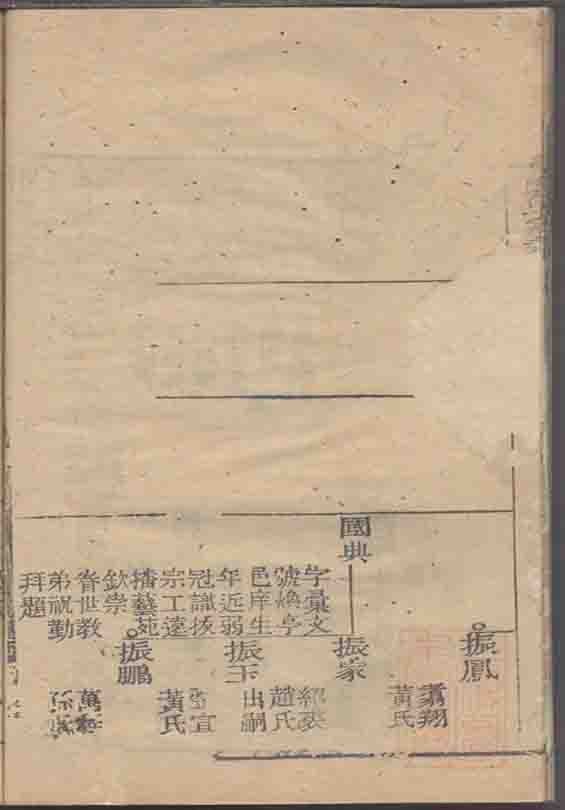 振鳳
翥翔
黃氏
國典
振家
紹裘
趙氏
出嗣
字彙文
號煥亭
邑庠生
年近弱
冠識拔
宗工遠
播藝苑
欽崇
眷世教
弟祝勤
拜題
振玉
亞宜
黃氏
振鵬